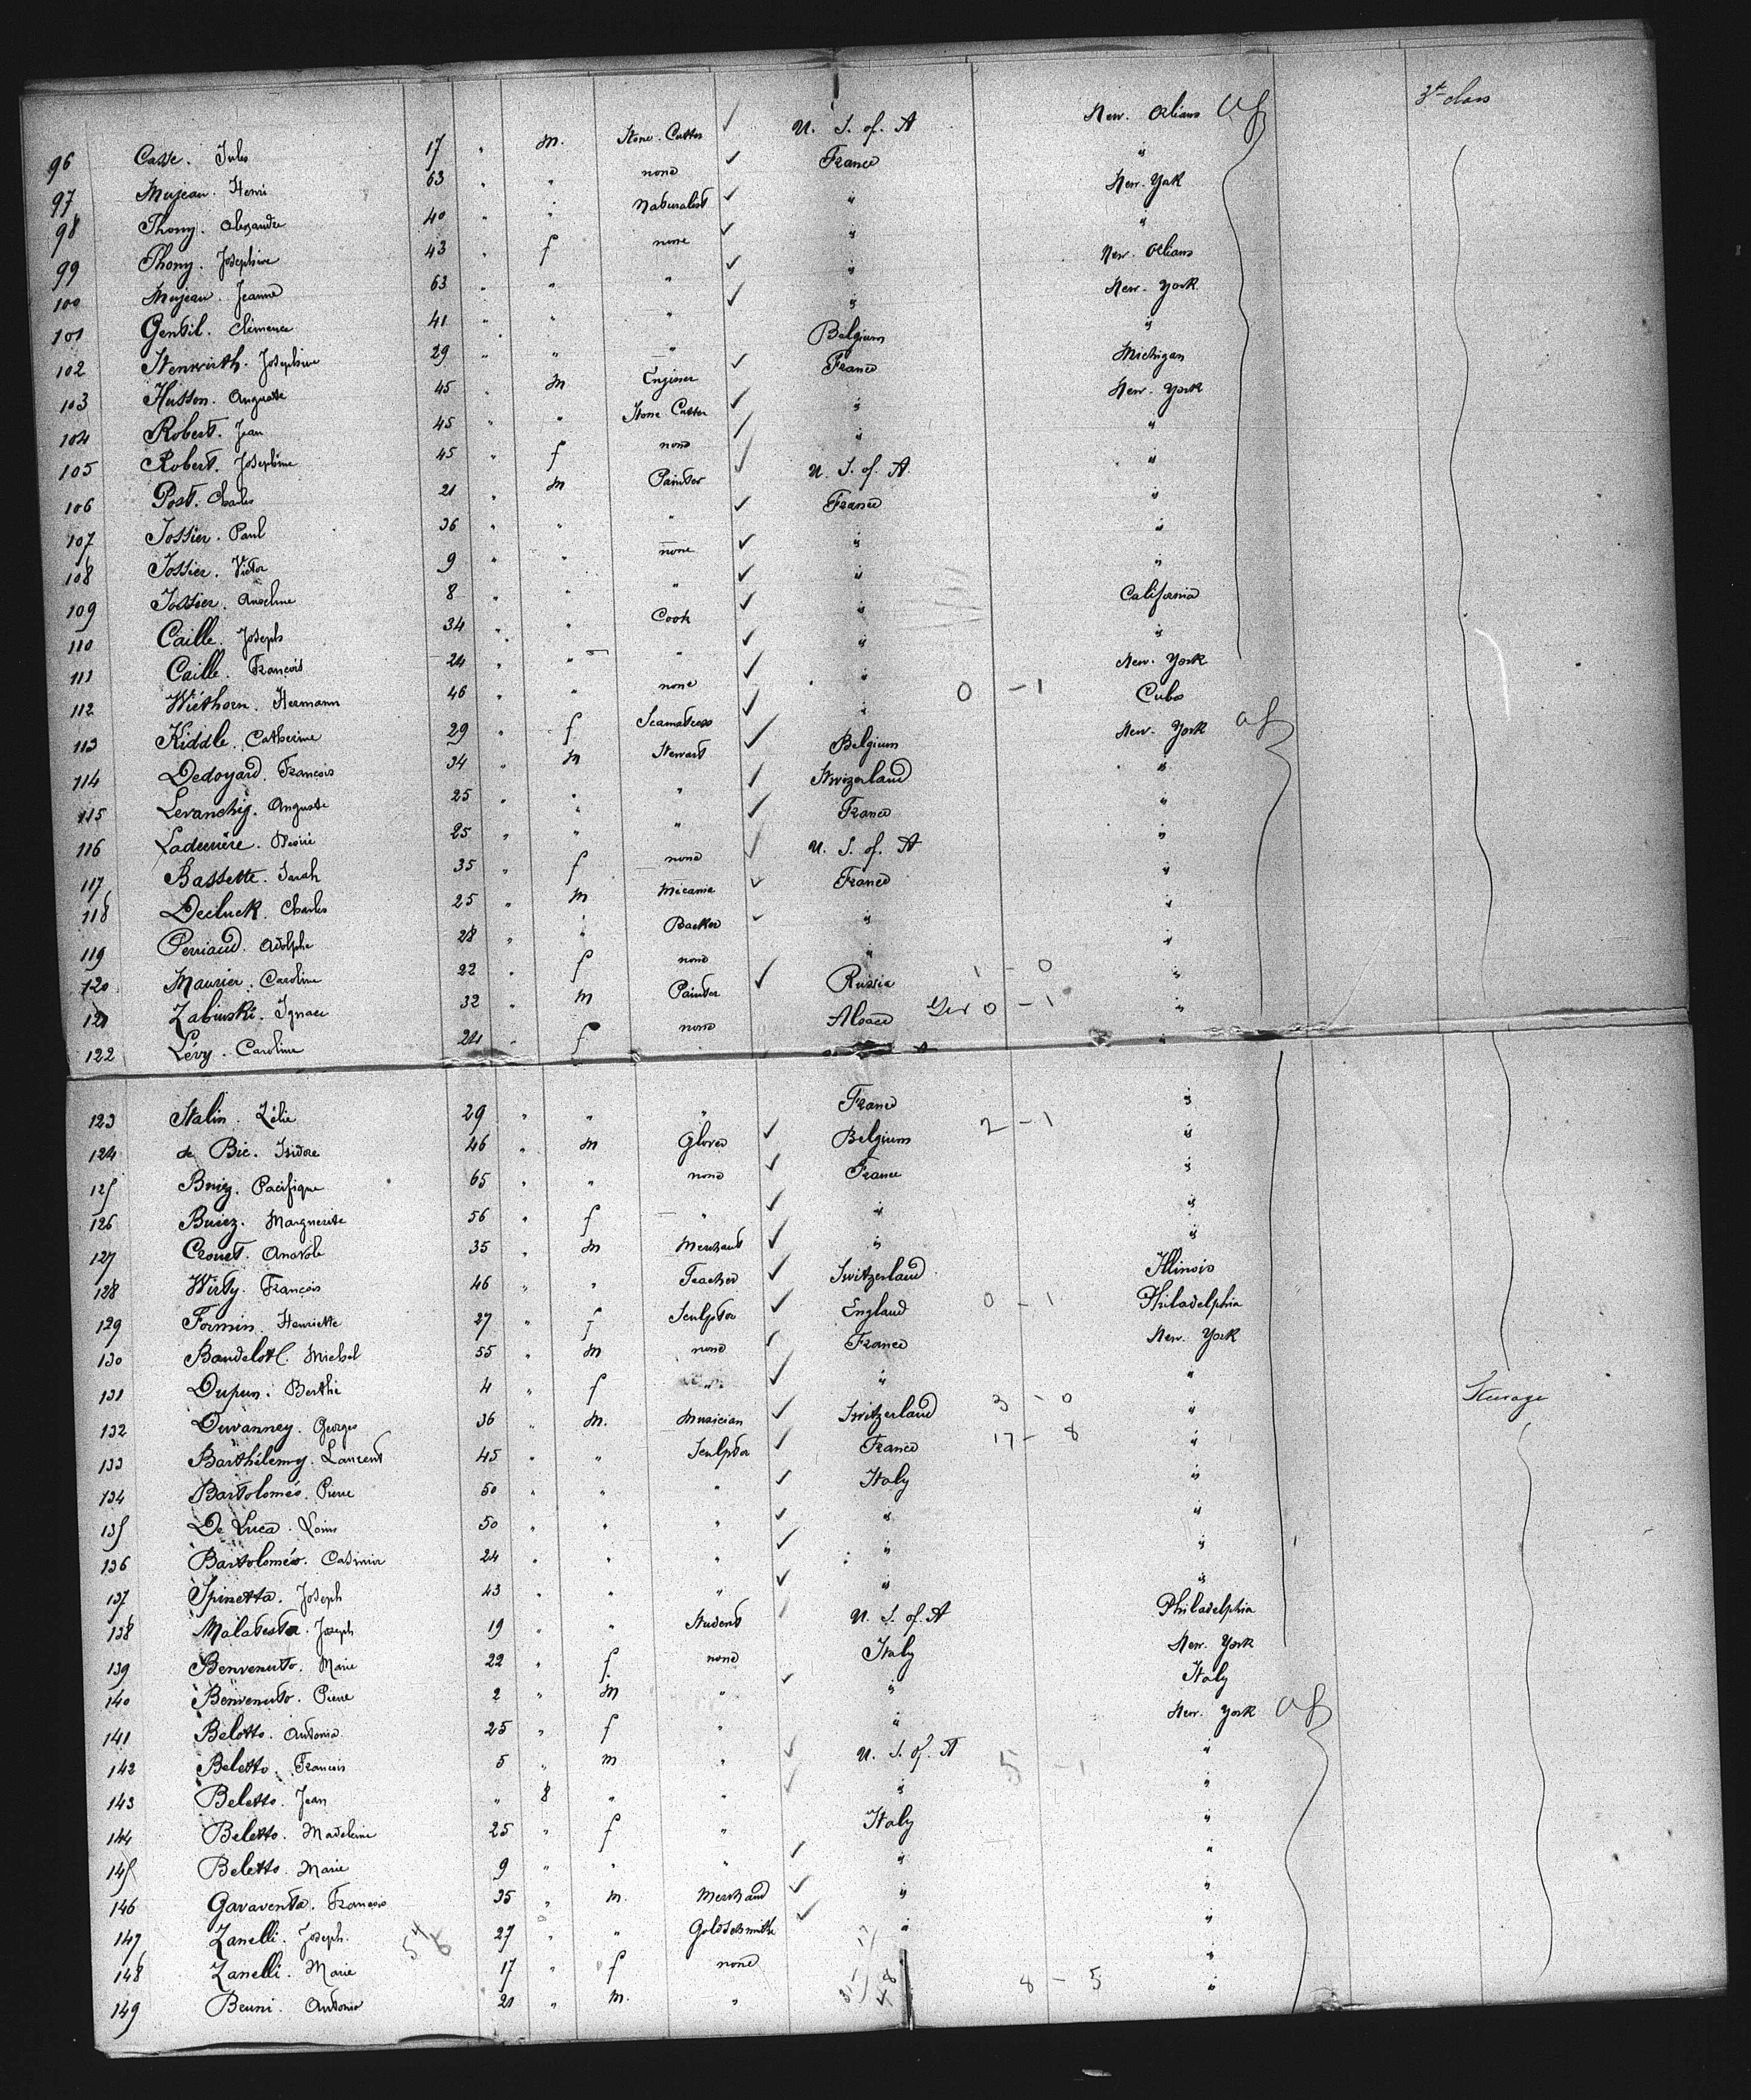 3d class
96 Casse. Jules 17 " m. Stone. Cutter ✓ U. S. of. A New. Orlians
97 Mujean. Henri 63 " " none ✓ France "
98 Thony. Alexandre 40 " " Naturalist ✓ " New. York
99 Thony. Josephine 43 " f none ✓ " "
100 Mujean. Jeanne 63 " " " ✓ " New. Orlians
101 Gentil. Clémence 41 " " " ✓ " New. York
102 Stenwirth. Josephine 29 " " " Belgium "
103 Husson. Auguste 45 " m Enginer ✓ France Michigan
104 Robert. Jean 45 " " Stone Cutter ✓ " New. York
105 Robert. Josephine 45 " f none ✓ " "
106 Post. Charles 21 " m Painter ✓ U. S. of. A "
107 Jossier. Paul 36 " " " ✓ France "
108 Jossier. Victor 9 " " none ✓ " "
109 Jossier. Anselme 8 " " " ✓ " "
110 Caille. Joseph 34 " " Cook ✓ " California
111 Caille. François 24 " " " ✓ " "
112 Wiéthorn. Hermann 46 " " none ✓ " 0 - 1 New. York
113 Kiddle. Catherine 29 " f Seamstress ✓ " Cuba
114 Dedoyard. François 34 " m Stewart ✓ Belgium New. York
115 Levanchy. Auguste 25 " " " ✓ Swizerland "
116 Laderrière. Désiré 25 " " " ✓ France "
117 Bassette. Sarah 35 " f none ✓ U. S. of. A "
118 Decluck. Charles 25 " m Mecanic ✓ France "
119 Perriaud. Adolphe 28 " " Backer ✓ " "
120 Maurier. Caroline 22 " f none " "
121 Zabinski. Ignace 32 " m Painter ✓ Russia 1 - 0 "
122 Lévy. Caroline 24 " f none Alsace Ger 0 - 1 "
123 Stalin. Zélie 29 " " " France "
124 de Bie. Isidore 46 " m Glover ✓ Belgium 2 - 1 "
125 Briez. Pacifique 65 " " none ✓ France "
126 Buiez. Marguerite 56 " f " ✓ " "
127 Crouet. Anatole 35 " m Merchant ✓ " "
128 Wirty. François 46 " " Teacher ✓ Switzerland Illinois
129 Formin. Henriette 27 " f Sculptor ✓ England 0 - 1 Philadelphia
130 Baudelot. Michel 55 " m none ✓ France New. York
131 Dupun. Berthe 4 " f " ✓ " "
Steerage
132 Duvanney. Georges 36 " m. Musician ✓ Switzerland 3 - 0 "
133 Barthélemy. Laurent 45 " " Sculptor ✓ France 17 - 8 "
134 Bartoloméo. Pierre 50 " " " ✓ Italy "
135 De Luca. Louis 50 " " " ✓ " "
136 Bartoloméo. Casimir 24 " " " ✓ " "
137 Spinetta. Joseph 43 " " " ✓ " "
138 Malatesta. Joseph 19 " " Student ✓ U. S. of. A Philadelphia
139 Benvenuto. Marie 22 " f none Italy New. York
140 Benvenuto. Pierre 2 " m " ✓ " Italy
141 Belotto. Antonia 25 " f " " New. York
142 Beletto. François 5 " m " ✓ U. S. of. A 5 - 1 "
143 Beletto. Jean " 8 " " ✓ " "
144 Beletto. Madeleine 25 " f " Italy "
145 Beletto. Marie 9 " " " ✓ " "
146 Gavaventa. François 35 " m. Merchand ✓ " "
147 Zanelli. Joseph. 27 " " Goldschmith ✓ " "
148 Zanelli. Marie 17 " f none "
149 Beuni. Antonio 21 " m. " 8 - 5 "